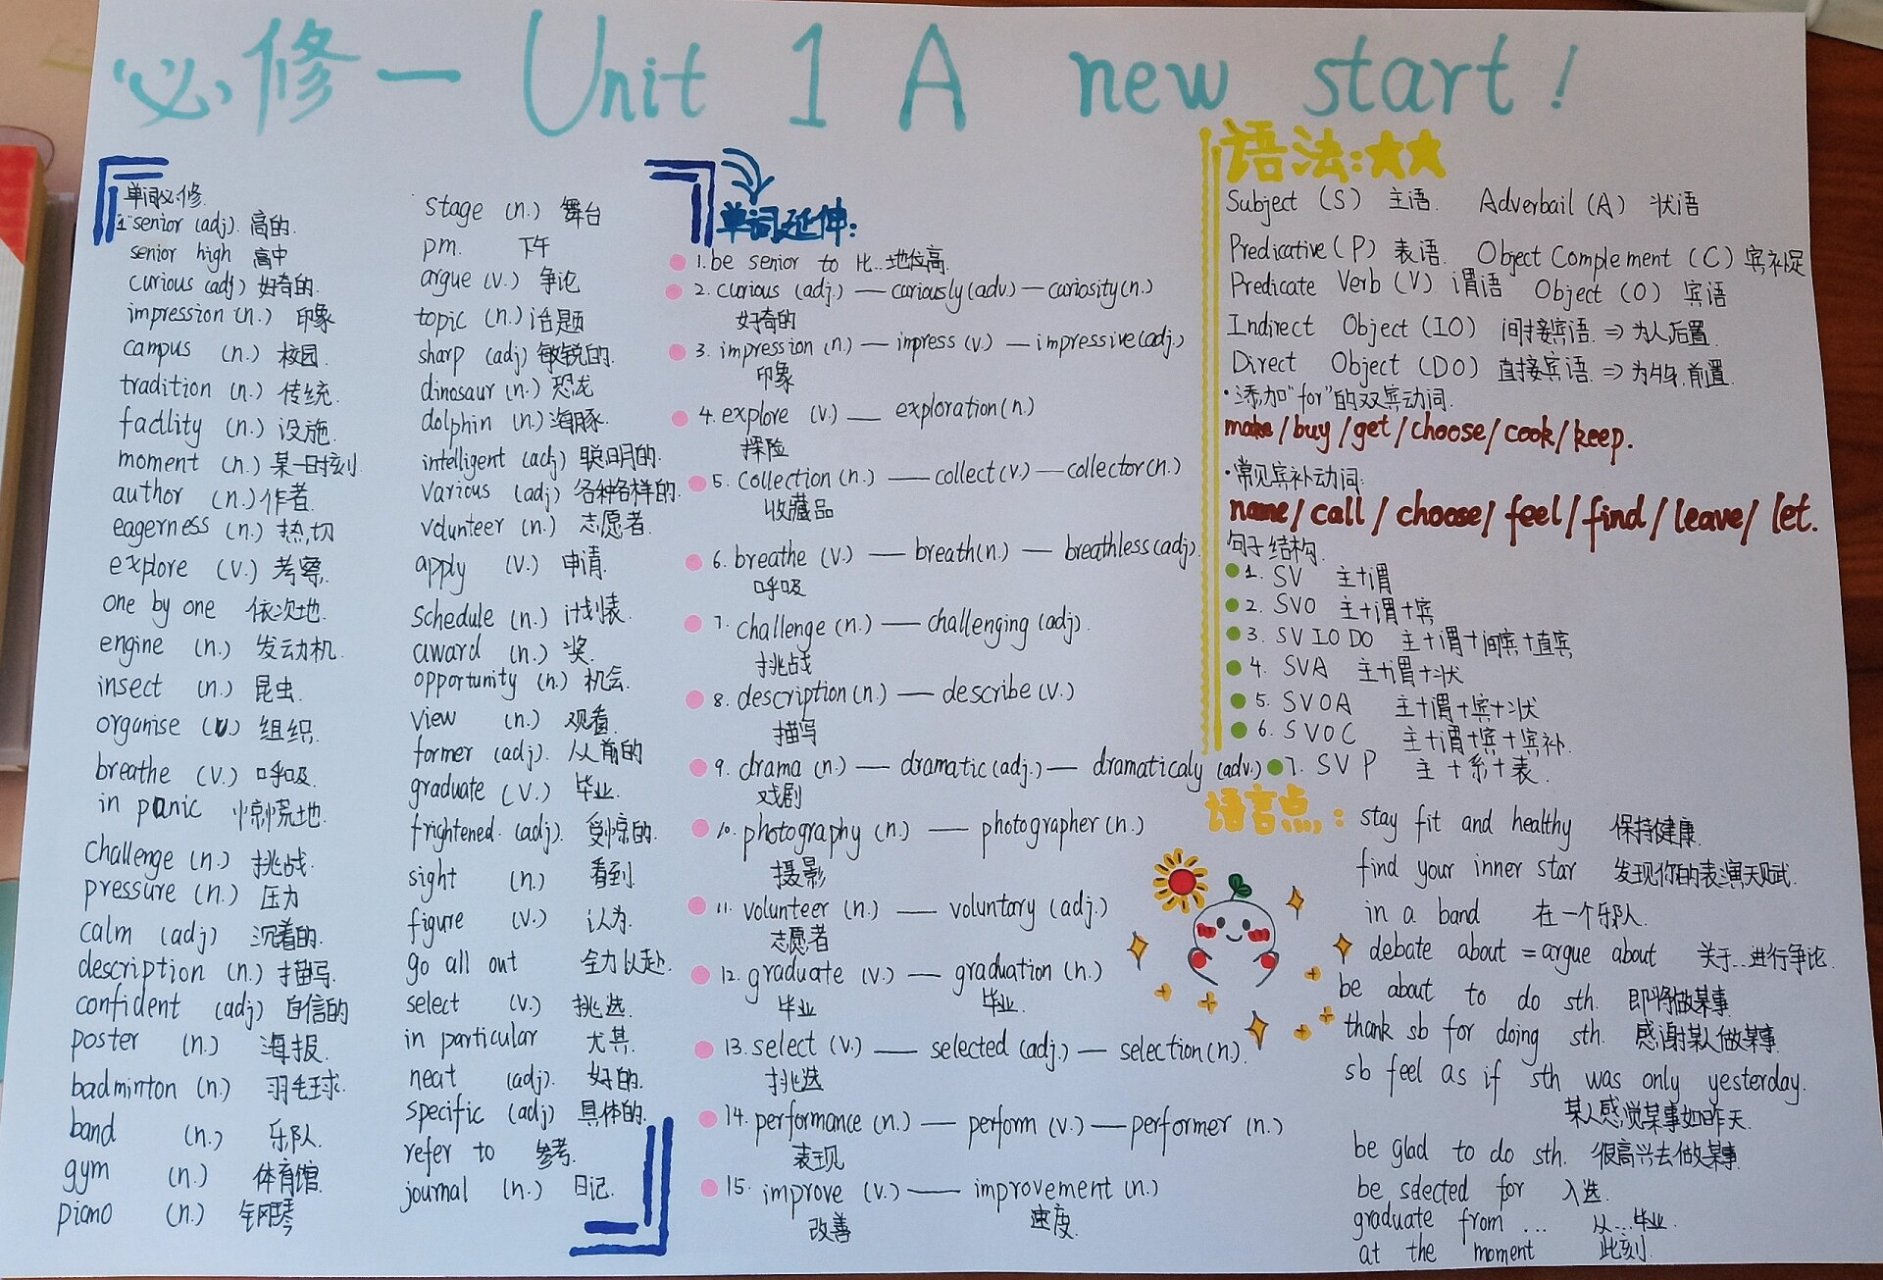 必修一 Unit 1 A new start!
单词必修
1 senior (adj). 高的.
senior high 高中
curious (adj) 好奇的.
impression (n.) 印象
campus (n.) 校园.
tradition (n.) 传统.
facllity (n.) 设施.
moment (n.) 某一时刻.
author (n.) 作者.
eagerness (n.) 热切
explore (v.) 考察.
one by one 依次地.
engine (n.) 发动机.
insect (n.) 昆虫.
organise (v.) 组织.
breathe (v.) 呼吸.
in panic 惊慌地.
challenge (n.) 挑战.
pressure (n.) 压力
calm (adj) 沉着的.
description (n.) 描写.
confident (adj) 自信的
poster (n.) 海报.
badminton (n.) 羽毛球.
band (n.) 乐队.
gym (n.) 体育馆.
piano (n.) 钢琴
stage (n.) 舞台
pm. 下午
argue (v.) 争论
topic (n.) 话题
sharp (adj) 敏锐的.
dinosaur (n.) 恐龙
dolphin (n.) 海豚.
intelligent (adj) 聪明的.
various (adj) 各种各样的.
volunteer (n.) 志愿者.
apply (v.) 申请.
schedule (n.) 计划表.
award (n.) 奖.
opportunity (n.) 机会.
view (n.) 观看.
former (adj). 从前的
graduate (v.) 毕业.
frightened. (adj). 受惊的.
sight (n.) 看到
figure (v.) 认为.
go all out 全力以赴.
select (v.) 挑选.
in particular 尤其.
neat (adj). 好的.
specific (adj) 具体的.
refer to 参考.
journal (n.) 日记.
单词延伸:
1. be senior to 比..地位高.
2. curious (adj.) — curiously (adv.) — curiosity (n.)
好奇的
3. impression (n.) — impress (v.) — impressive (adj.)
印象
4. explore (v.) — exploration (n.)
探险
5. collection (n.) — collect (v.) — collector (n.)
收藏品
6. breathe (v.) — breath (n.) — breathless (adj).
呼吸
7. challenge (n.) — challenging (adj).
挑战
8. description (n.) — describe (v.)
描写
9. drama (n.) — dramatic (adj.) — dramaticaly (adv.)
戏剧
10. photography (n.) — photographer (n.)
摄影
11. volunteer (n.) — voluntary (adj.)
志愿者
12. graduate (v.) — graduation (n.)
毕业 毕业.
13. select (v.) — selected (adj.) — selection (n).
挑选
14. performance (n.) — perform (v.) — performer (n.)
表现
15. improve (v.) — improvement (n.)
改善 速度.
语法:★★
Subject (S) 主语. Adverbail (A) 状语
Predicative (P) 表语. Object Complement (C) 宾补足
Predicate Verb (V) 谓语 Object (O) 宾语
Indirect Object (IO) 间接宾语 ⇒ 为人后置.
Direct Object (DO) 直接宾语 ⇒ 为物.前置.
·添加"for"的双宾动词.
make / buy / get / choose / cook / keep.
·常见宾补动词:
name / call / choose / feel / find / leave / let.
句子结构.
1. SV 主+谓
2. SVO 主+谓+宾
3. SV IO DO 主+谓+间宾+直宾
4. SVA 主+谓+状
5. SVOA 主+谓+宾+状
6. SVOC 主+谓+宾+宾补.
7. SVP 主+系+表.
语言点:
stay fit and healthy 保持健康.
find your inner star 发现你的表演天赋.
in a band 在一个乐队.
debate about = argue about 关于...进行争论.
be about to do sth. 即将做某事
thank sb for doing sth. 感谢某人做某事.
sb feel as if sth was only yesterday.
某人感觉某事如昨天.
be glad to do sth. 很高兴去做某事.
be selected for 入选.
graduate from ... 从...毕业.
at the moment 此刻.